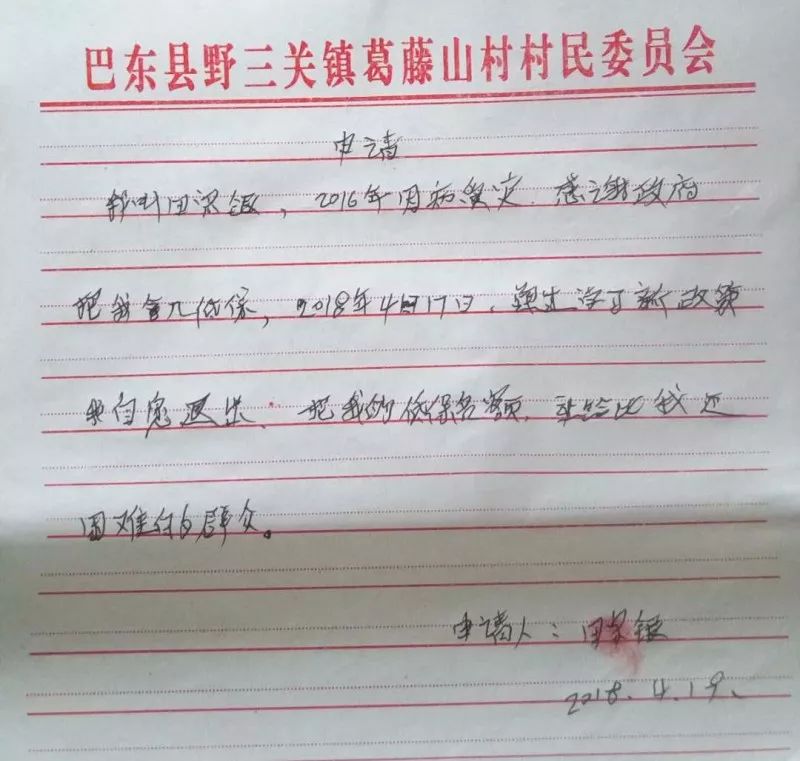 巴东县野三关镇葛藤山村村民委员会
申请
我叫田银，2016年因病致灾.感谢政府
把我拿入低保，2018年4月17日.学了新政策
我自愿退出.把我的低保名额.让给比我还
困难的群众。
申请人：田银
2018.4.19.